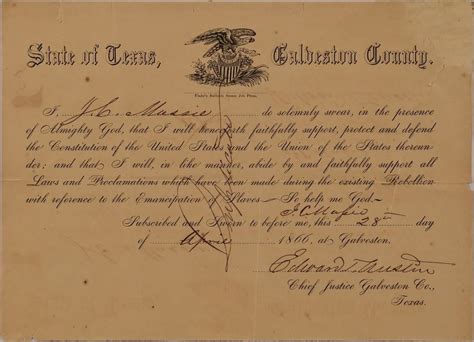 State of Texas, Galveston County.
I J. C. Massie do solemnly swear, in the presence
of Almighty God, that I will henceforth faithfully support, protect and defend
the Constitution of the United States and the Union of the States thereun-
der; and that I will, in like manner, abide by and faithfully support all
Laws and Proclamations which have been made during the existing Rebellion
with reference to the Emancipation of Slaves—So help me God.
J C Massie
Subscribed and Sworn to before me, this 28th day
of April 1866, at Galveston.
Edward T. Austin
Chief Justice Galveston Co.,
Texas.